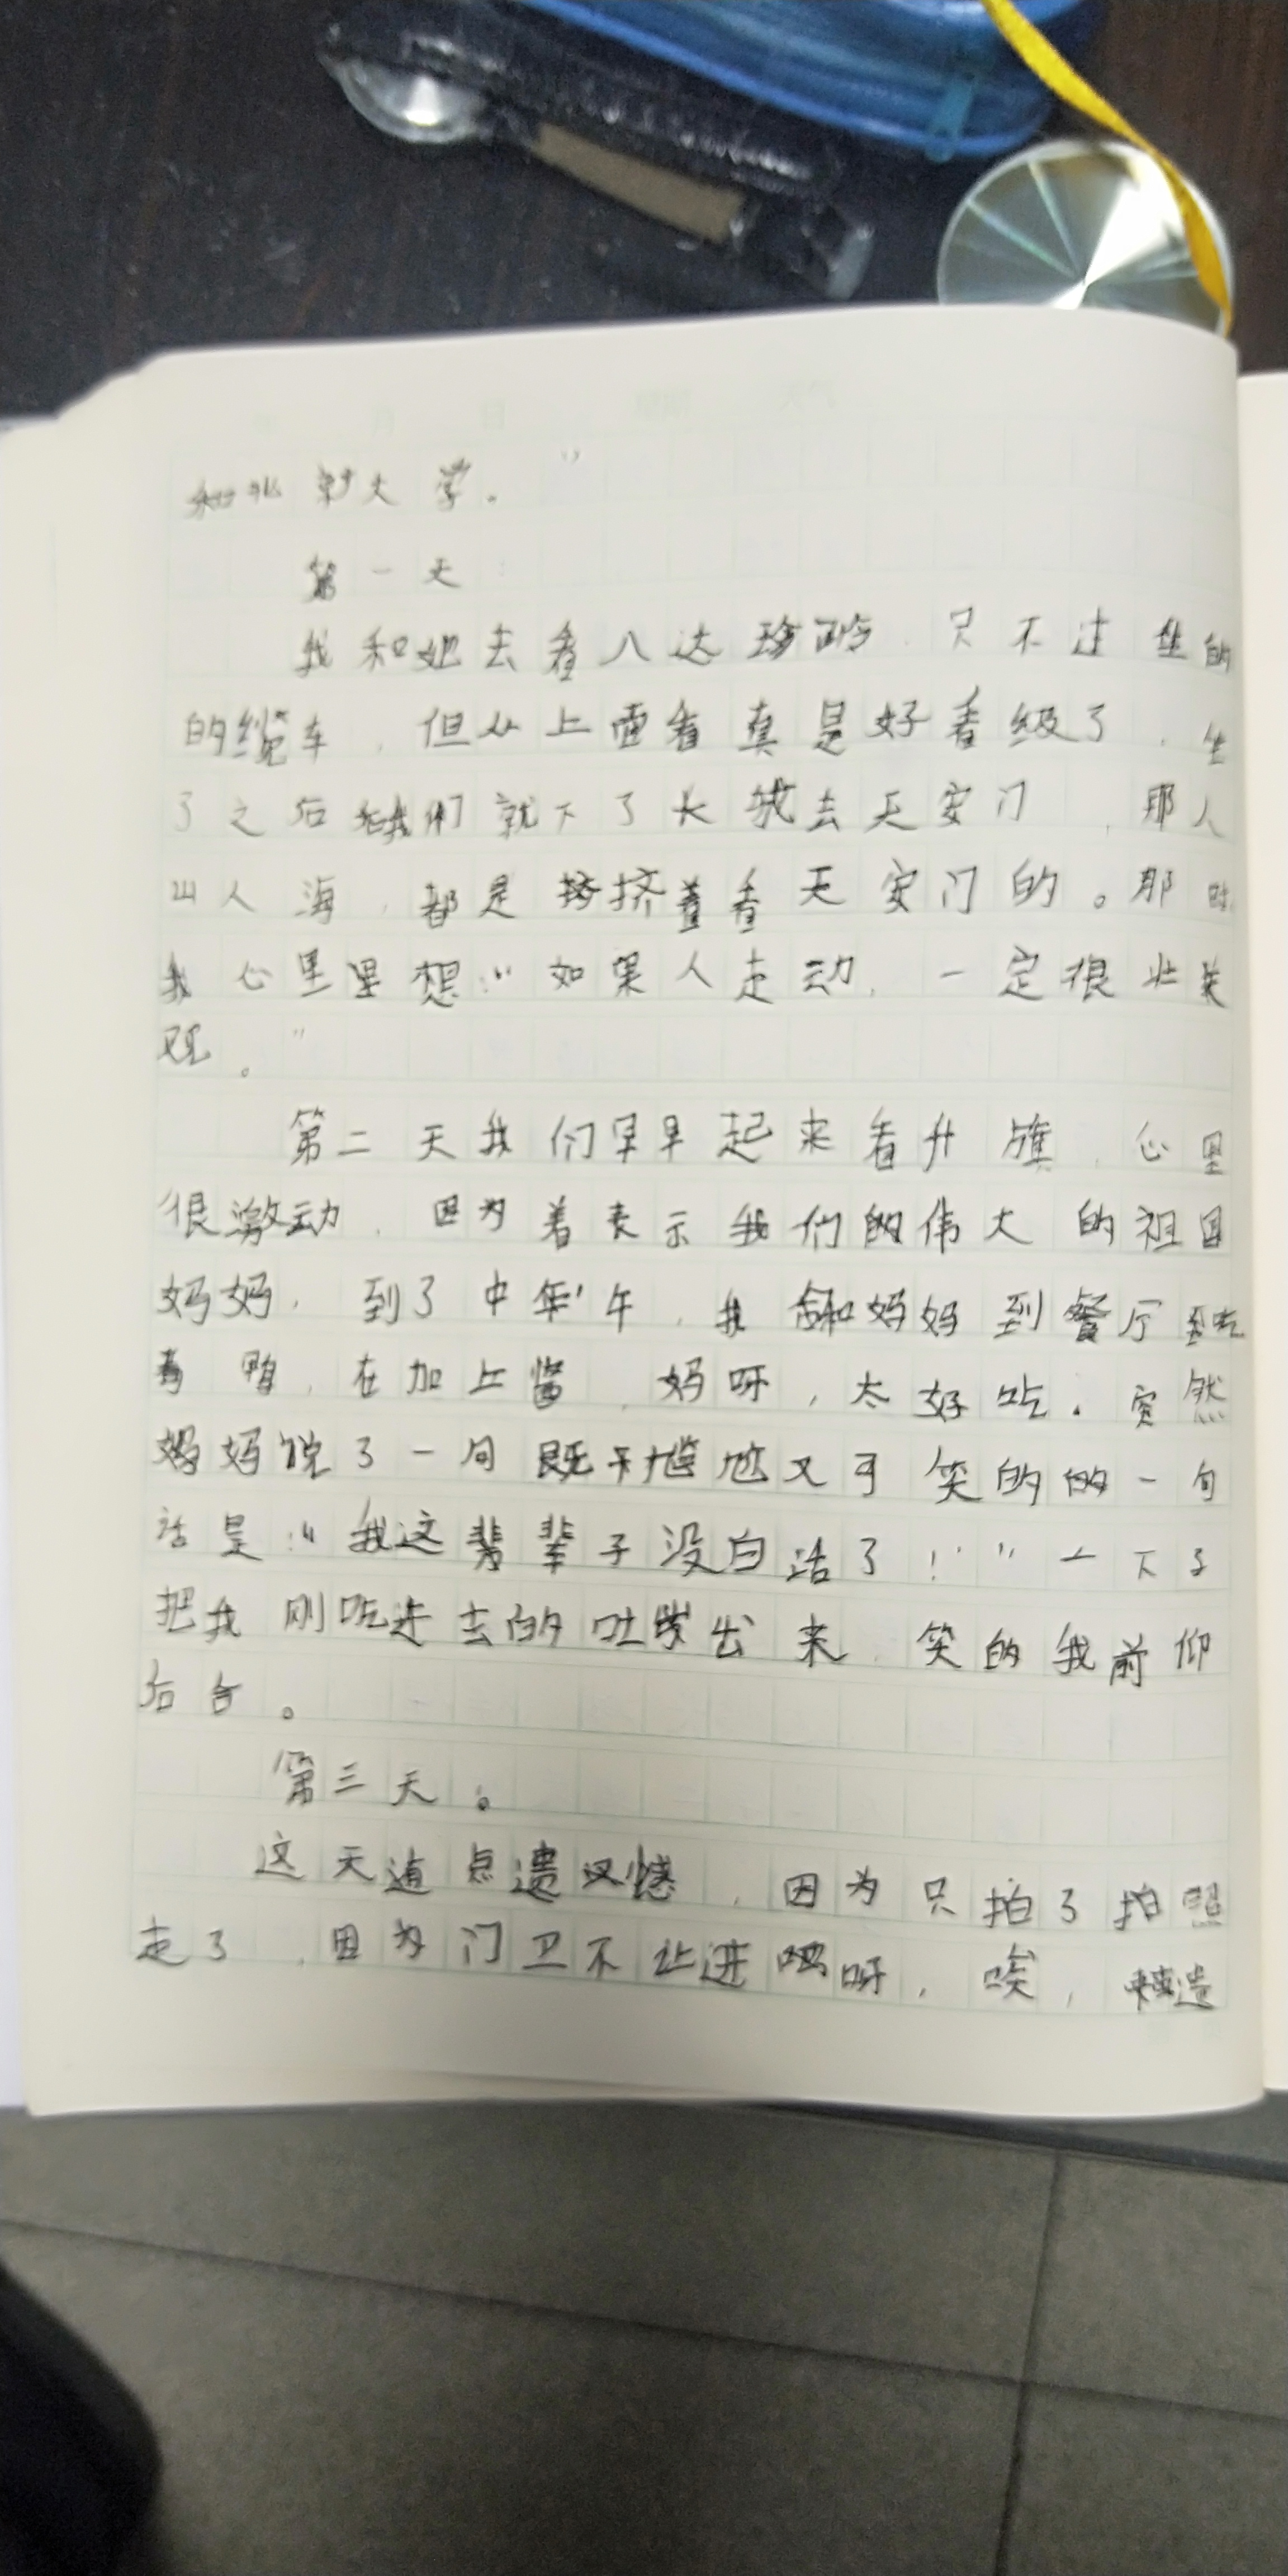 和北京大学。”
第一天
我和她去看八达岭,只不过坐的
的缆车,但从上面看真是好看级了,坐
了之后我们就下了长城去天安门,那人
山人海,都是挤挤着看天安门的。那时
我心里里想:“如果人走动,一定很壮美
观。”
第二天我们早早起来看升旗,心里
很激动,因为着表示我们的伟大的祖国
妈妈,到了中午,我和妈妈到餐厅吃
鸭,在加上酱,妈呀,太好吃.突然
妈妈说了一句既尴尬又可笑的的一句
话是:“我这辈子没白活了!”一下子
把我刚吃进去的吐出来,笑的我前仰
后合。
第三天。
这天有点遗憾,因为只拍了拍照
走了,因为门卫不让进呀,唉,